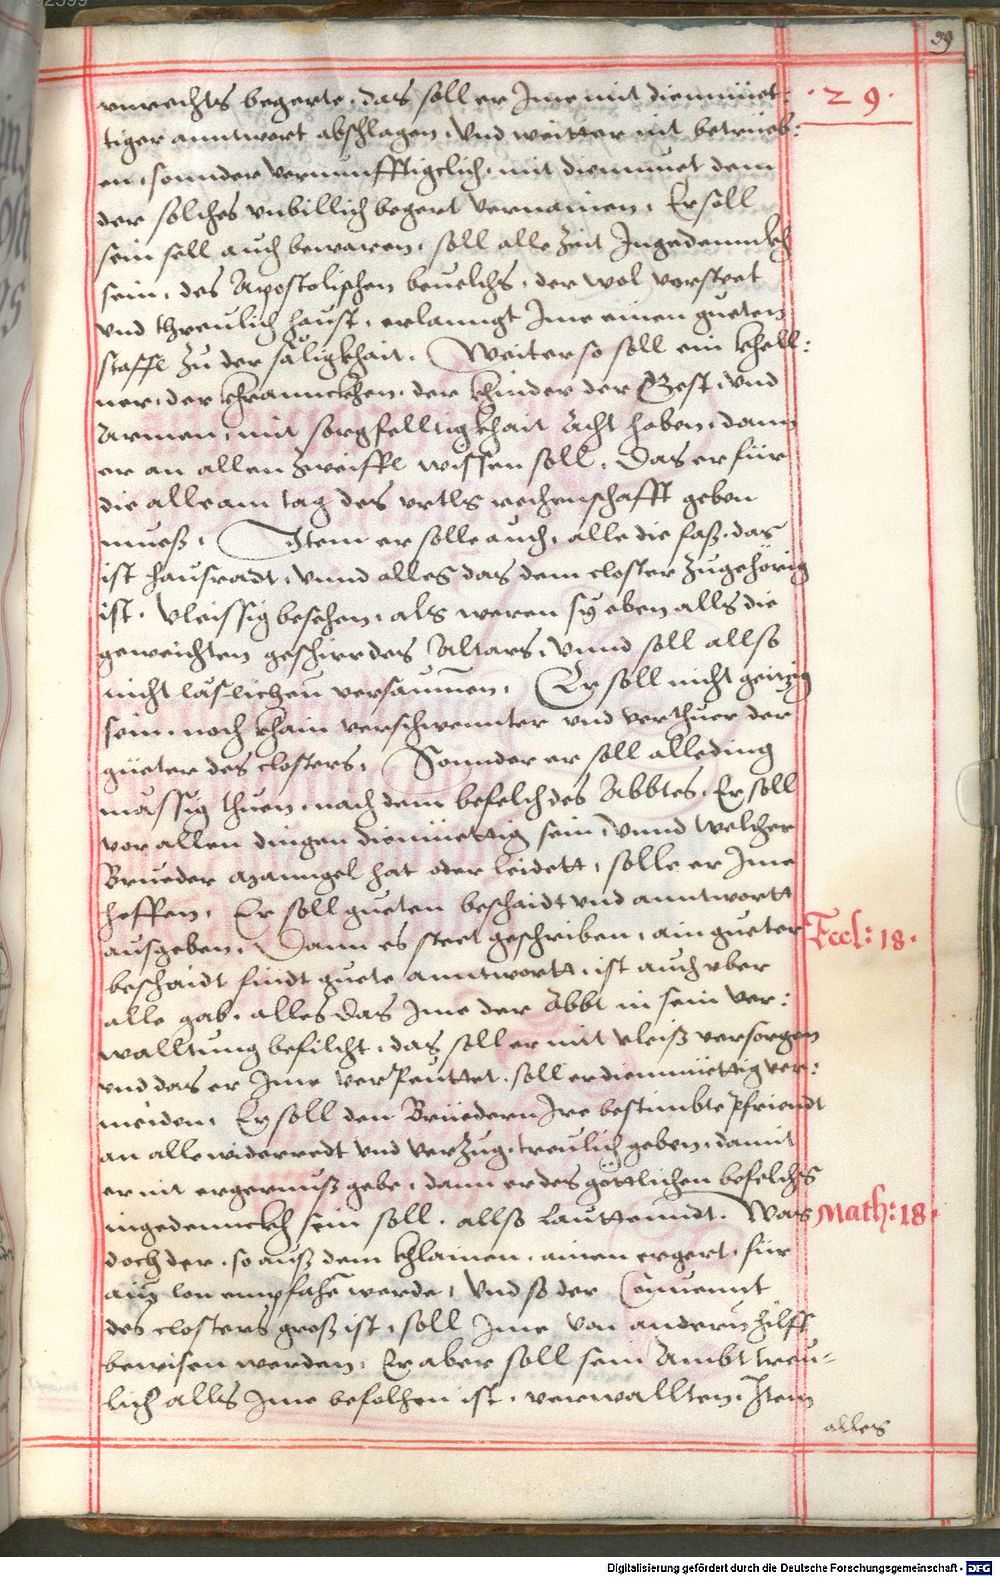 39
· 29 ·
vnrechts begerte, das soll er Ime mit diemmüet:
tiger anntwort abschlagen, Vnd weitter nit betrüeb:
en, sonnder vernunfftigclich, mit diemuet dem
der solches vnbillich begert vernainen. Er soll
sein sell auch bewaren, soll alle zeit Ingedennckh
sein, des Apostolischen beuelchs, der wol vorsteet
vnd threulich haust, erlanngt Ime einen gueten
staffl zu der säligkhait. Weiter so soll ein khell:
ner, der khrannckhen, der khinder der Gest, vnd
Armen, mit sorgfelltigkhait Acht haben, dann
er an allen zweiffl wissen soll, Das er für
die alle am tag des vrtls rechenschafft geben
muess. Item er solle auch, alle die fass, das
ist hausradt, vnnd alles das dem closter zugehörig
ist, vleissig besehen, als weren sy eben alls die
geweichten geschirr des Altars, vnnd soll allso
nicht läslichen versaumen. Er soll nicht geitzig
sein, noch khain verschwennter vnd verthuer der
güeter des closters, Sonnder er soll alle ding
mässig thuen, nach dem befelch des Abbtes. Er soll
vor allen dingen diemüettig sein, Vnnd welcher
Brueder manngel hat oder leidett, solle er Ime
helffen. Er soll gueten beschaidt vnd anntwortt
ausgeben, Dann es steet geschriben, ain gueter
Eccl: 18.
beschaidt sindt guete anntwortt, ist auch vber
alle gab, alles das Ime der Abbt in sein ver:
walltung befilcht, das soll er mit vleiss versorgen
vnd das er Ime verpeuttet, soll er diemmüettig ver:
meiden, Er soll den Brüedern Ire bestimbte pfriendt
an alle widerredt vnd verzug, treulich geben, damit
er nit ergernuss gebe, dann er des göttlichen befelchs
ingedennckh sein soll, allso lauttenndt. Was
Math: 18.
doch der, so auss dem khlainen, ainen ergert, für
ain lon empfahen werde, Vnd so der Conuennt
des closters gross ist, soll Ime von andern hilff
bewisen werden, Er aber soll sein Ambt treu=
lich alls Ime befolhen ist, verwallten, Item
alles
Digitalisierung gefördert durch die Deutsche Forschungsgemeinschaft - DFG